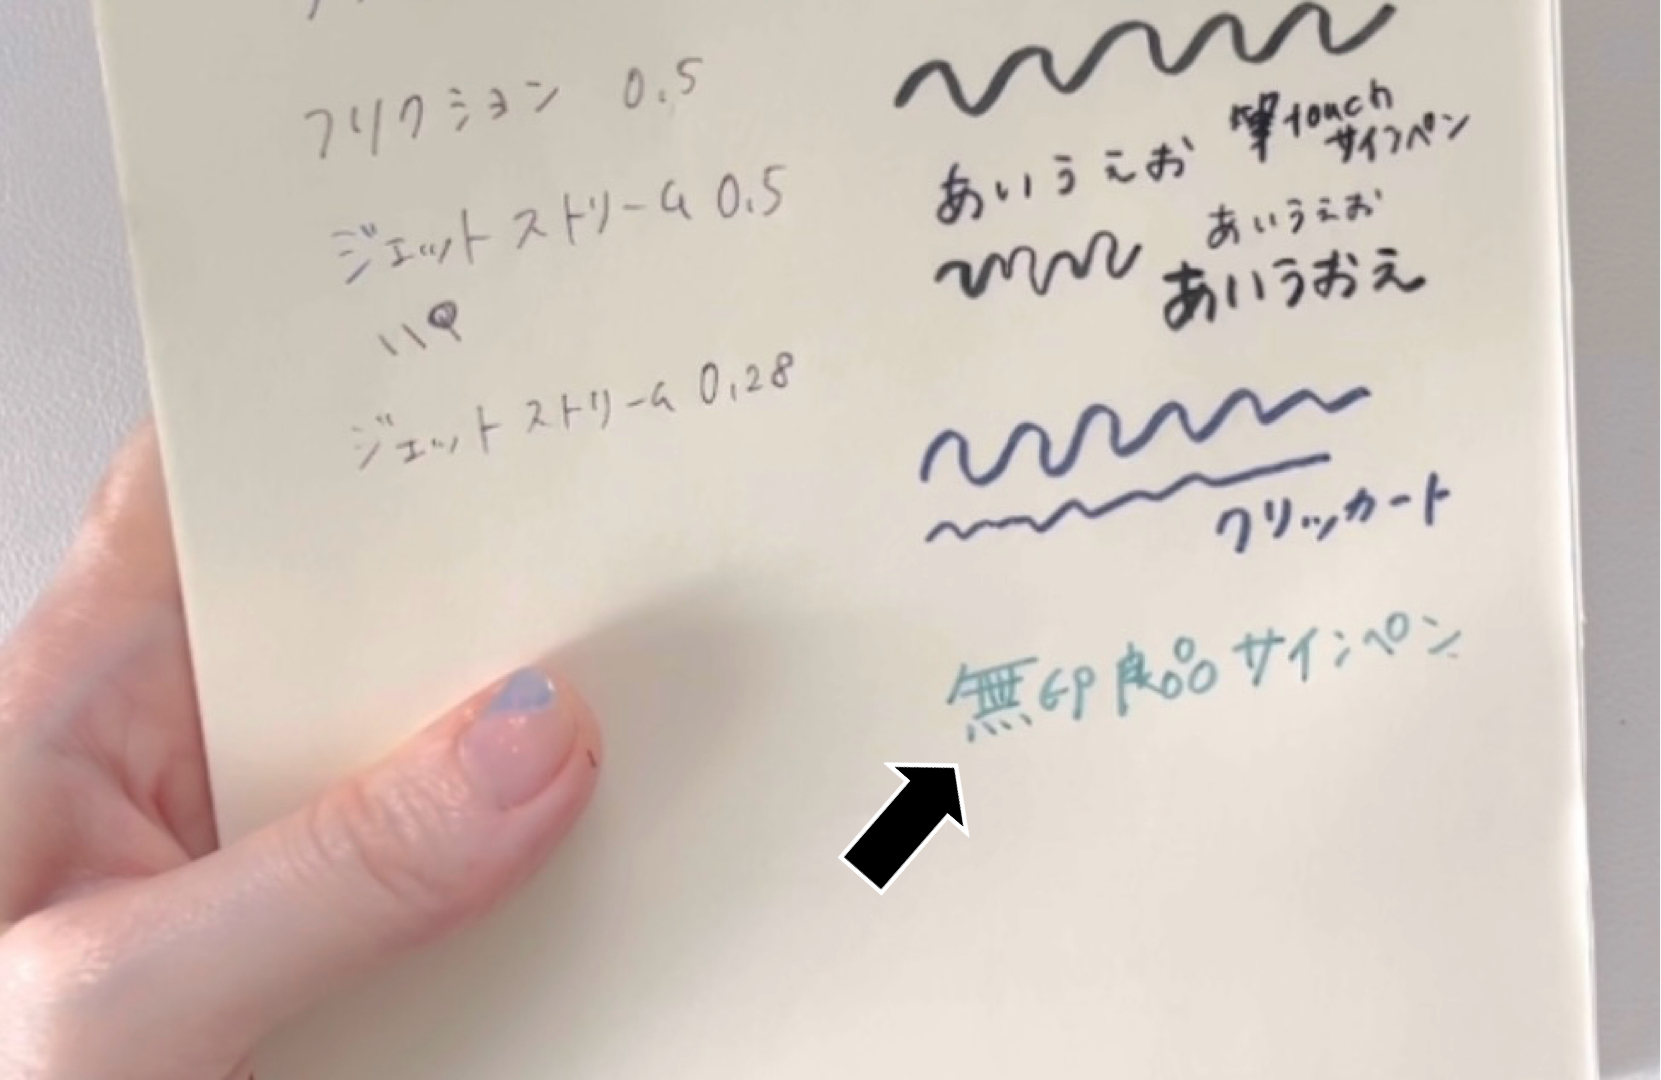 フリクション 0.5
ジェットストリーム 0.5
ジェットストリーム 0.28
筆touch
サインペン
あいうえお
あいうえお
あいうおえ
クリッカート
無印良品サインペン